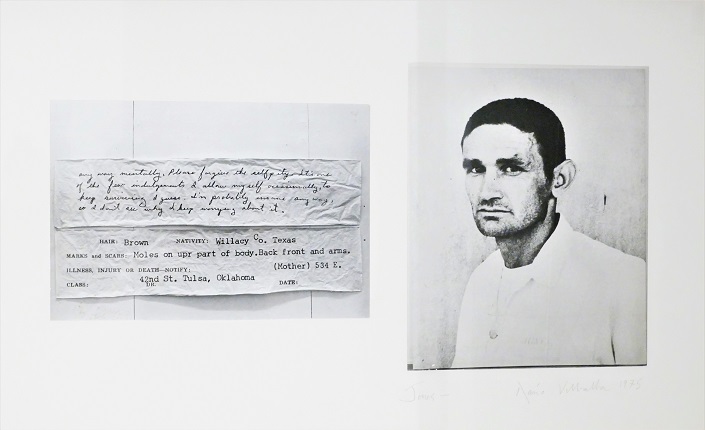 any way mentally. Please forgive the self pity. It's one
of the few indulgements I allow myself occasionally, to
keep surviving I guess. I'm probably insane any way,
so I don't see why I keep worrying about it.
HAIR: Brown NATIVITY: Willacy Co. Texas
MARKS and SCARS: Moles on upr part of body.Back front and arms.
ILLNESS, INJURY OR DEATH—NOTIFY: (Mother) 534 E.
42nd St. Tulsa, Oklahoma
CLASS: DR. DATE:
1975